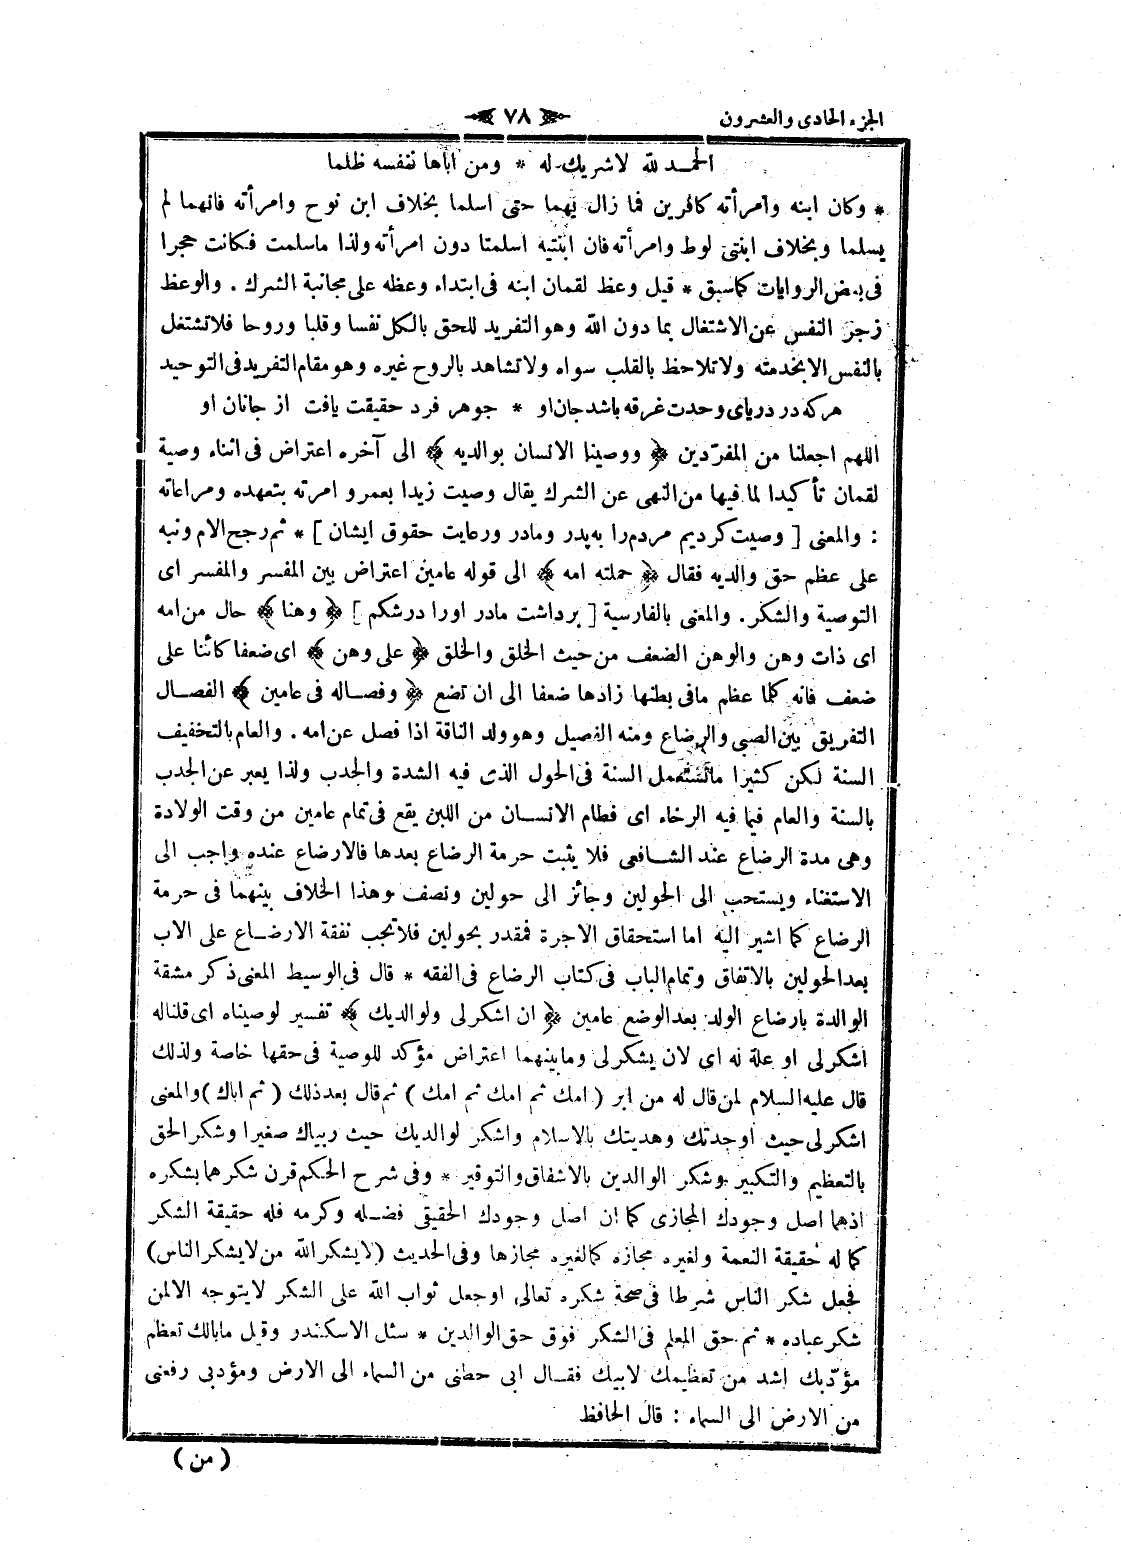 الجزء الحادى والعشرون
٧٨
الحمد لله لاشريك له * ومن اباها نفسه ظلما
* وكان ابنه وامرأته كافرين فما زال بهما حتى اسلما بخلاف ابن نوح وامرأته فانهما لم
يسلما وبخلاف ابنتى لوط وامرأته فان ابنتيه اسلمتا دون امرأته ولذا ماسلمت فكانت حجرا
فى بعض الروايات كماسبق * قيل وعظ لقمان ابنه فى ابتداء وعظه على مجانبة الشرك . والوعظ
زجر النفس عن الاشتغال بما دون الله وهو التفريد للحق بالكل نفسا وقلبا وروحا فلاتشتغل
بالنفس الابخدمته ولاتلاحظ بالقلب سواه ولاتشاهد بالروح غيره وهو مقام التفريد فى التوحيد
هركه در درياى وحدت غرقه باشد جان او * جوهر فرد حقيقت يافت از جانان او
اللهم اجعلنا من المفرّدين ﴿ ووصينا الانسان بوالديه ﴾ الى آخره اعتراض فى اثناء وصية
لقمان تأكيدا لما فيها من النهى عن الشرك يقال وصيت زيدا بعمرو امرته بتعهده ومراعاته
: والمعنى [ وصيت كرديم مردم را به پدر ومادر ورعايت حقوق ايشان ] * ثم رجح الام ونبه
على عظم حق والديه فقال ﴿ حملته امه ﴾ الى قوله عامين اعتراض بين المفسر والمفسر اى
التوصية والشكر . والمعنى بالفارسية [ برداشت مادر اورا درشكم ] ﴿ وهنا ﴾ حال من امه
اى ذات وهن والوهن الضعف من حيث الخلق والخلق ﴿ على وهن ﴾ اى ضعفا كائنا على
ضعف فانه كلما عظم مافى بطنها زادها ضعفا الى ان تضع ﴿ وفصاله فى عامين ﴾ الفصال
التفريق بين الصبى والرضاع ومنه الفصيل وهو ولد الناقة اذا فصل عن امه . والعام بالتخفيف
السنة لكن كثيرا ماتستعمل السنة فى الحول الذى فيه الشدة والجدب ولذا يعبر عن الجدب
بالسنة والعام فيما فيه الرخاء اى فطام الانسان من اللبن يقع فى تمام عامين من وقت الولادة
وهى مدة الرضاع عند الشافعى فلا يثبت حرمة الرضاع بعدها فالارضاع عنده واجب الى
الاستغناء ويستحب الى الحولين وجائز الى حولين ونصف وهذا الخلاف بينهما فى حرمة
الرضاع كما اشير اليه اما استحقاق الاجرة فمقدر بحولين فلاتجب نفقة الارضاع على الاب
بعد الحولين بالاتفاق وتمام الباب فى كتاب الرضاع فى الفقه * قال فى الوسيط المعنى ذكر مشقة
الوالدة بارضاع الولد بعد الوضع عامين ﴿ ان اشكر لى ولوالديك ﴾ تفسير لوصيناه اى قلناله
اشكر لى او علة له اى لان يشكر لى ومابينهما اعتراض مؤكد للوصية فى حقها خاصة ولذلك
قال عليه السلام لمن قال له من ابر ( امك ثم امك ثم امك ) ثم قال بعد ذلك ( ثم اباك ) والمعنى
اشكر لى حيث اوجدتك وهديتك بالاسلام واشكر لوالديك حيث ربياك صغيرا وشكر الحق
بالتعظيم والتكبير وشكر الوالدين بالاشفاق والتوقير * وفى شرح الحكم قرن شكرهما بشكره
اذهما اصل وجودك المجازى كما ان اصل وجودك الحقيقى فضله وكرمه فله حقيقة الشكر
كما له حقيقة النعمة ولغيره مجازه كمالغيره مجازها وفى الحديث ( لايشكر الله من لايشكر الناس )
فجعل شكر الناس شرطا فى صحة شكره تعالى اوجعل ثواب الله على الشكر لايتوجه الالمن
شكر عباده * ثم حق المعلم فى الشكر فوق حق الوالدين * سئل الاسكندر وقيل مابالك تعظم
مؤدّبك اشد من تعظيمك لابيك فقال ابى حطنى من السماء الى الارض ومؤدبى رفعنى
من الارض الى السماء : قال الحافظ
( من )